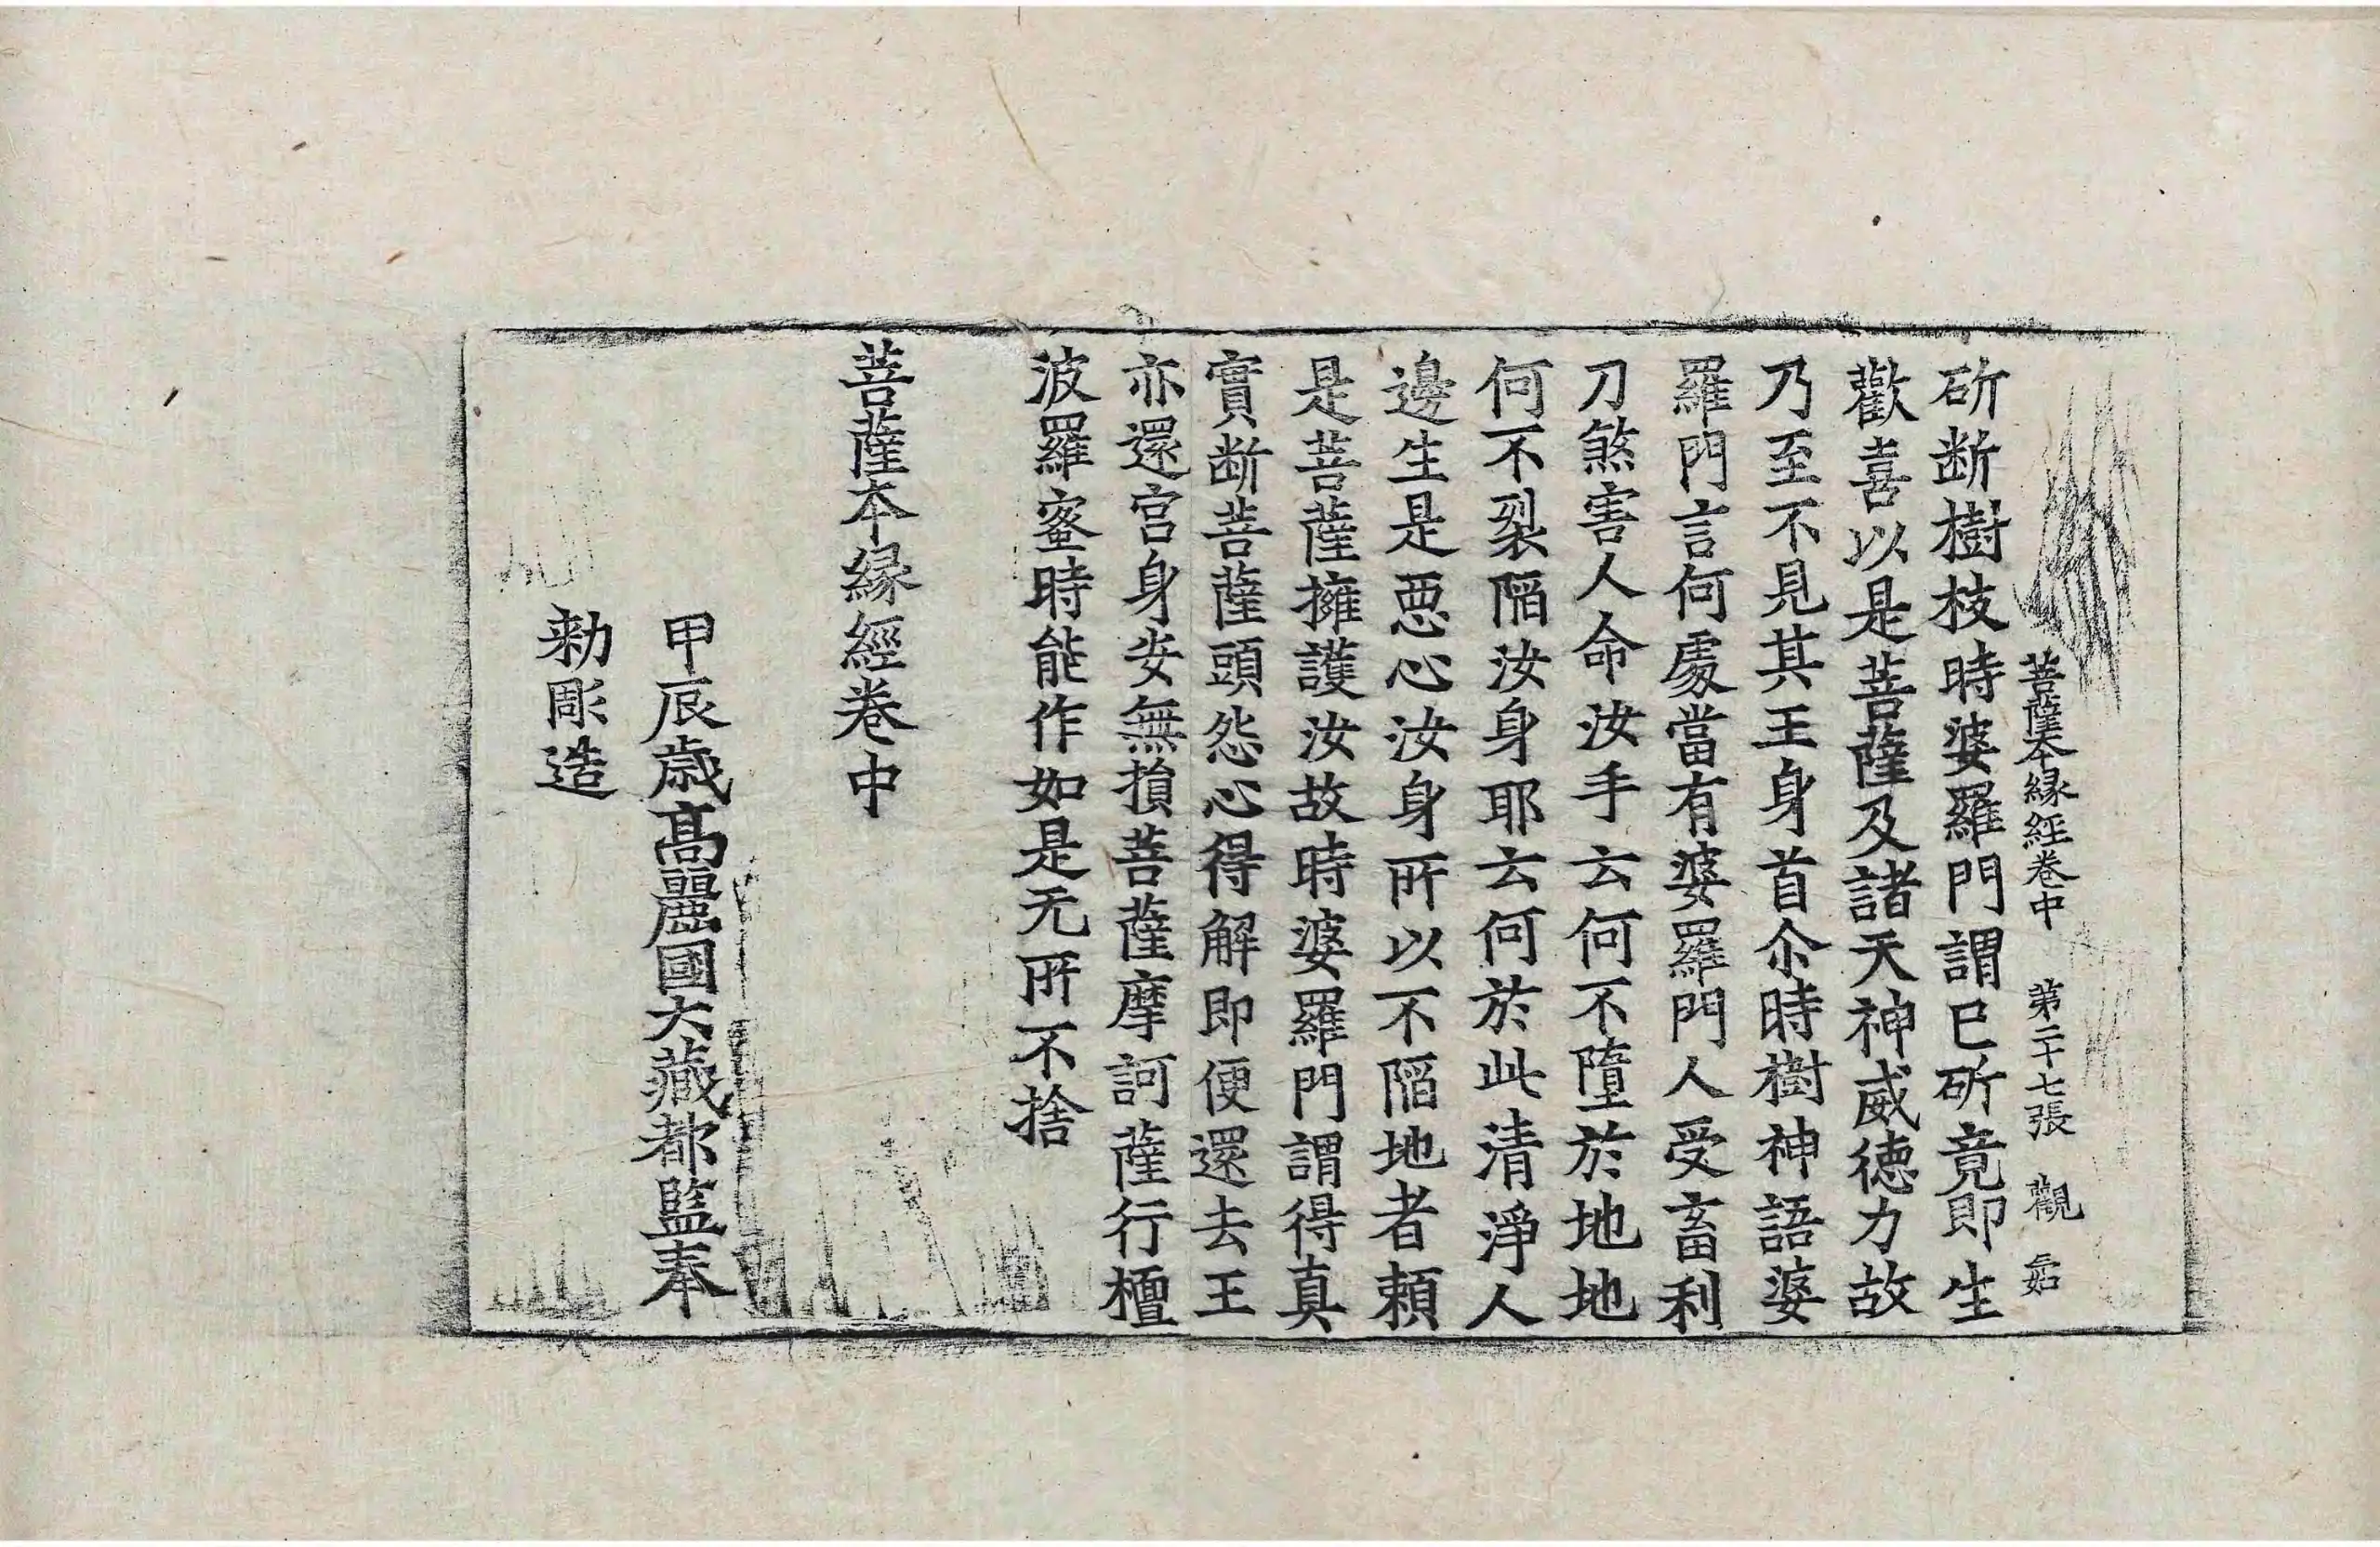 菩薩本縁經卷中 第二十七張 觀
斫断樹枝時婆羅門謂已斫竟即生
歡喜以是菩薩及諸天神威徳力故
乃至不見其王身首尒時樹神語婆
羅門言何處當有婆羅門人受畜利
刀煞害人命汝手云何不墮於地地
何不裂陷汝身耶云何於此清淨人
邊生是惡心汝身所以不陷地者賴
是菩薩擁護汝故時婆羅門謂得真
實断菩薩頭怨心得解即便還去王
亦還宫身安無損菩薩摩訶薩行檀
波羅蜜時能作如是无所不捨
菩薩本縁經卷中
甲辰歳髙麗國大藏都監奉
勅彫造